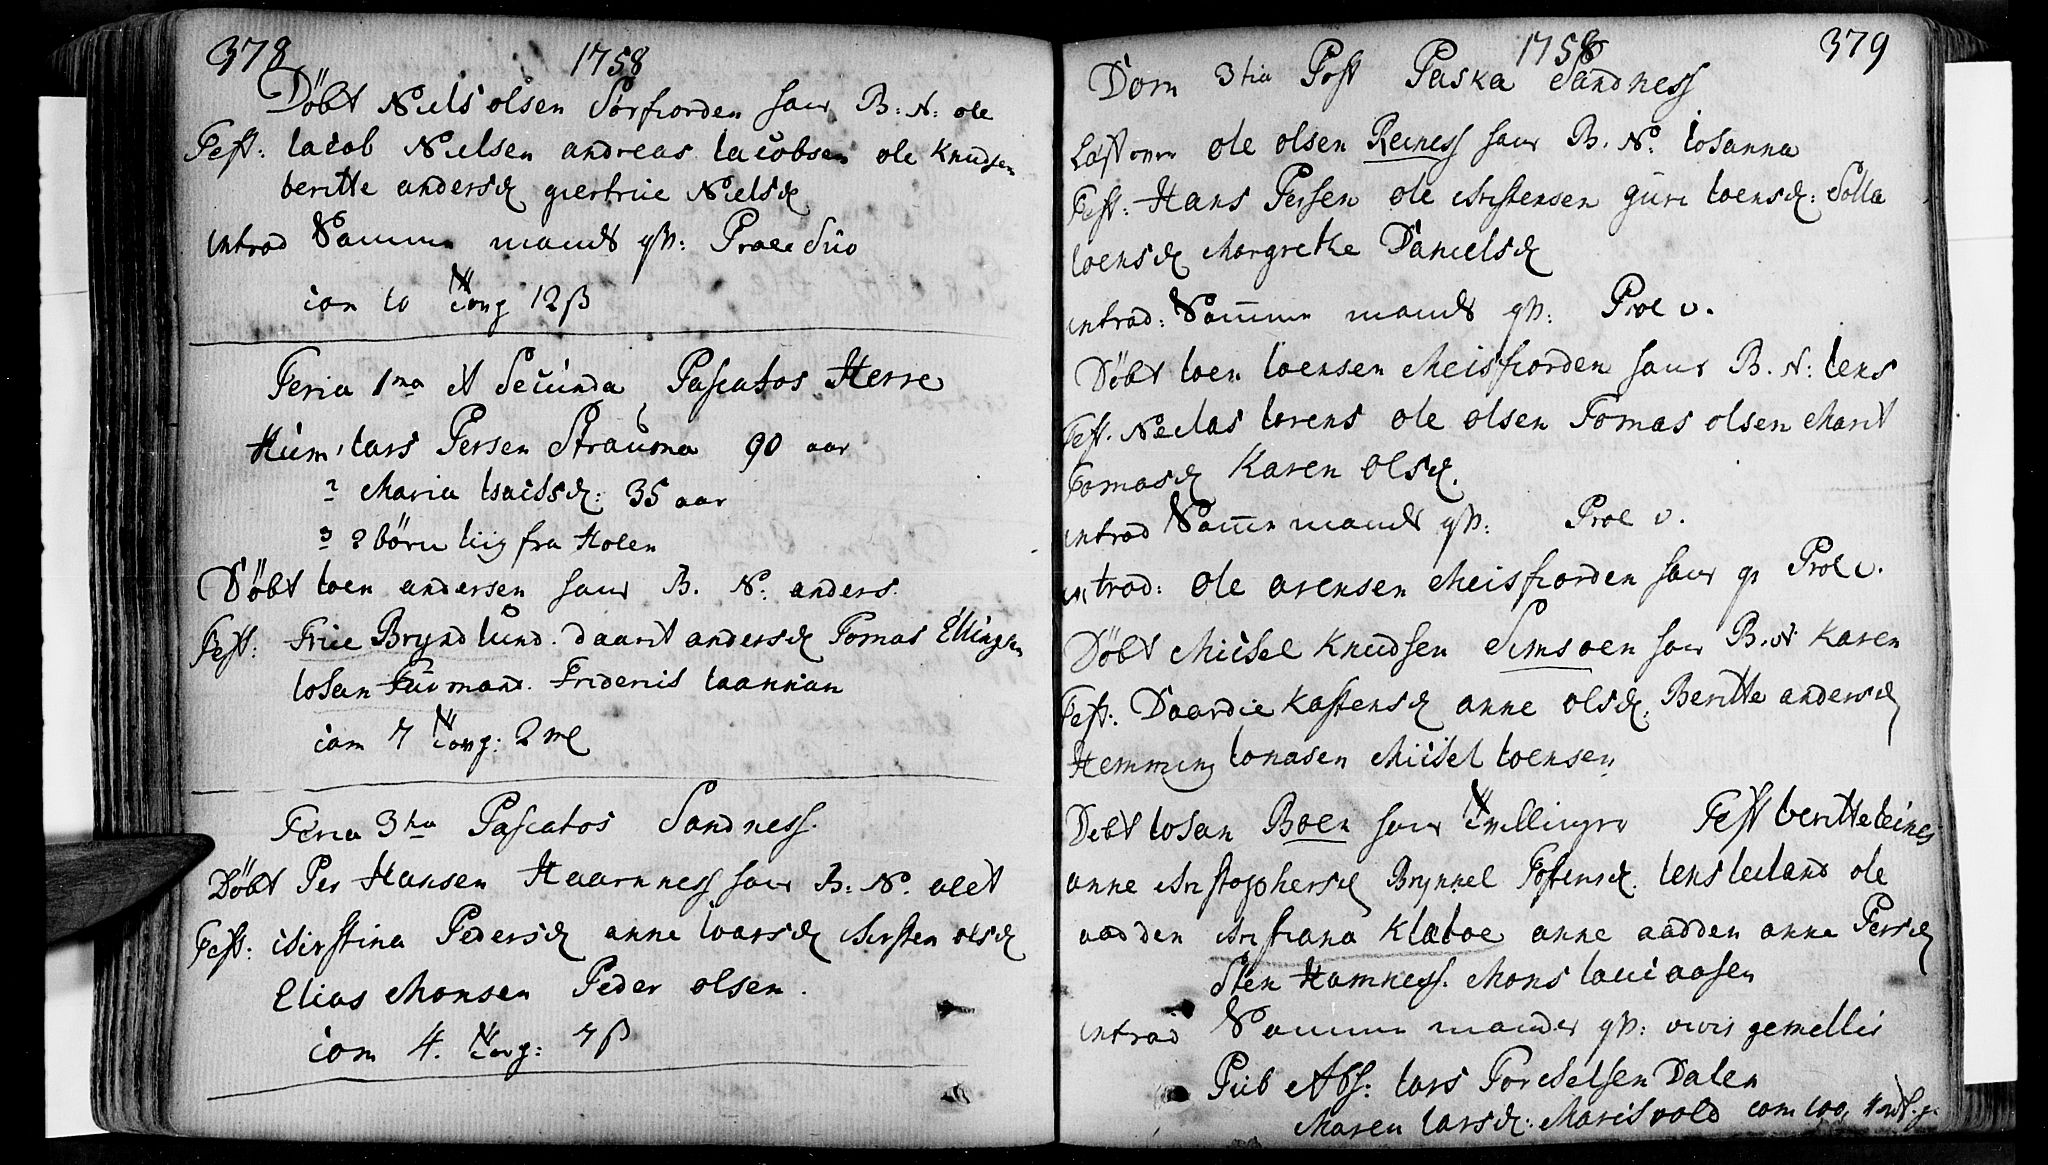 378
1758
Döbt Niels olsen Sörfiorden haur B: N: ole
Test: Iacob Nielsen andreas Iacobsen ole Knudsen
beritte andersd giertrue Nielsd
introd Samme mands qv: Prole suo
com 10 Tong 12 ß
Feria 1ma et Secunda Pascatos Herre
Hum: lars Persen Straumen 90 aar
2 Maria Isacksd: 35 aar
3 2 börn liig fra Holen
Döbt Ioen andersen haur B. N: anders.
Test: Frue Brynd lund. daarit andersd Tomas Ellingsen
Iohan Fuurmand. Frideriis
com 7 Tong: 2 ml
Feria 3tia Pascatos Sandness.
Döbt Per Hansen Haarnness haur B: N: alet
Test: Kirstina Pedersd anne Ivarsd Kirsten olsd
Elias Monsen Peder olsen.
com 4. Tong: 7 ß
1758
379
Dom 3tia Post Paska Sandness
ole olsen Reiness haur B. N: Iohanna
Test: Hans Persen ole Kristensen guri Ioensd: Solla
Ioensd Margrethe Danielsd
introd: Samme mands qv: Prole v.
Döbt Ioen Ioensen Meisfiorden haur B. N: Iens
Test. Neclas lorens ole olsen Tomas olsen Marit
Tomasd Karen olsd.
introd Samme mands qv: Prole v.
introd: ole arensen Meisfiorden haur qv Prole v.
Döbt Mickel Knudsen Simsoen haur B. N: Karen
Test: Daardie Kastensd anne olsd. Beritte andersd
Hemming Ionasen Mickel Ioensen
Döbt Iohan Boen haur Tvillinger Test beritte
anne Kristophersd Brynnel Tostensd. Iens leiland ole
aadden Kristiana Klæboe anne aadden anne Persd
Sten Hamness. Mons
introd Samme mandes qv: vivis gemellis
Pub Abs: lars Torkelsen Dalen
Maren larsd: Marisvold com